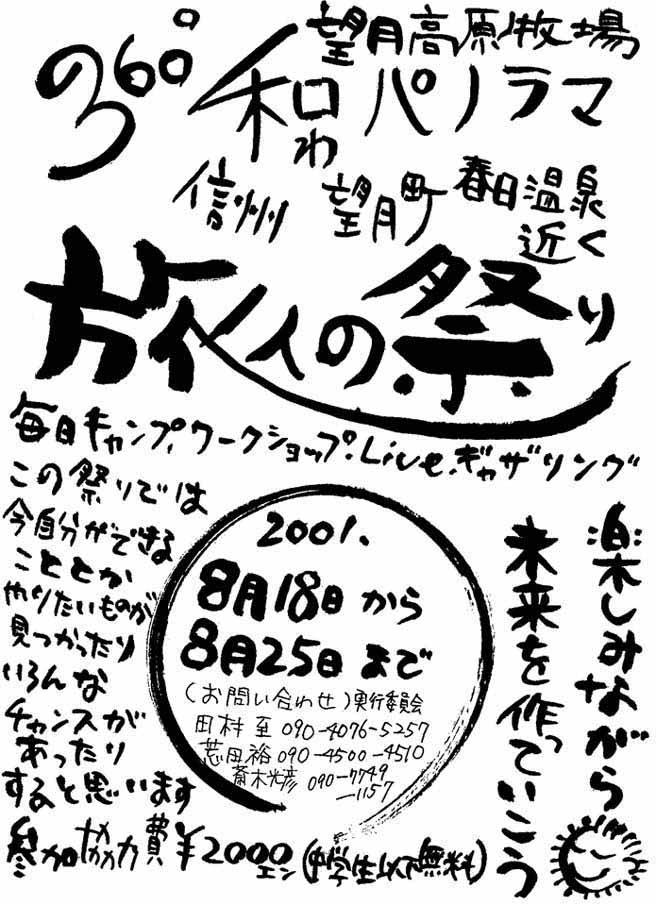 望月高原牧場
の360°和パノラマ
わ
信州 望月町 春日温泉
近く
旅人の祭り
毎日キャンプ.ワークショップ.Live.ギャザリング
この祭りでは
今自分ができる
こととか
やりたいものが
見つかったり
いろんな
チャンスが
あったり
すると思います
2001.
8月18日から
8月25日まで
(お問い合わせ)実行委員会
田村至 090-4076-5257
裕 090-4500-4510
斎木光彦 090-7749
-1157
楽しみながら
未来を作っていこう
参加協力費 ¥2000エン (中学生以下無料)